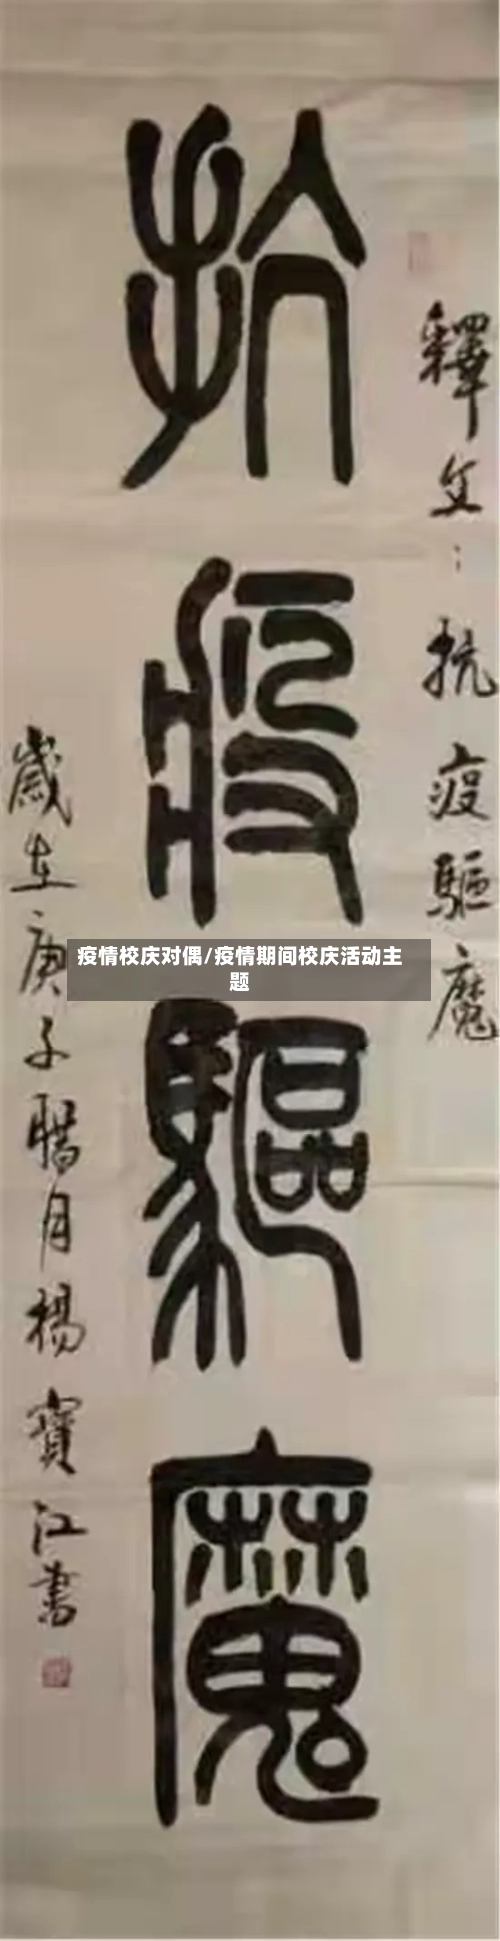 釋文：抗疫驅魔
抗疫驅魔
歲在庚子腊月楊寶江書
疫情校庆对偶/疫情期间校庆活动主
题